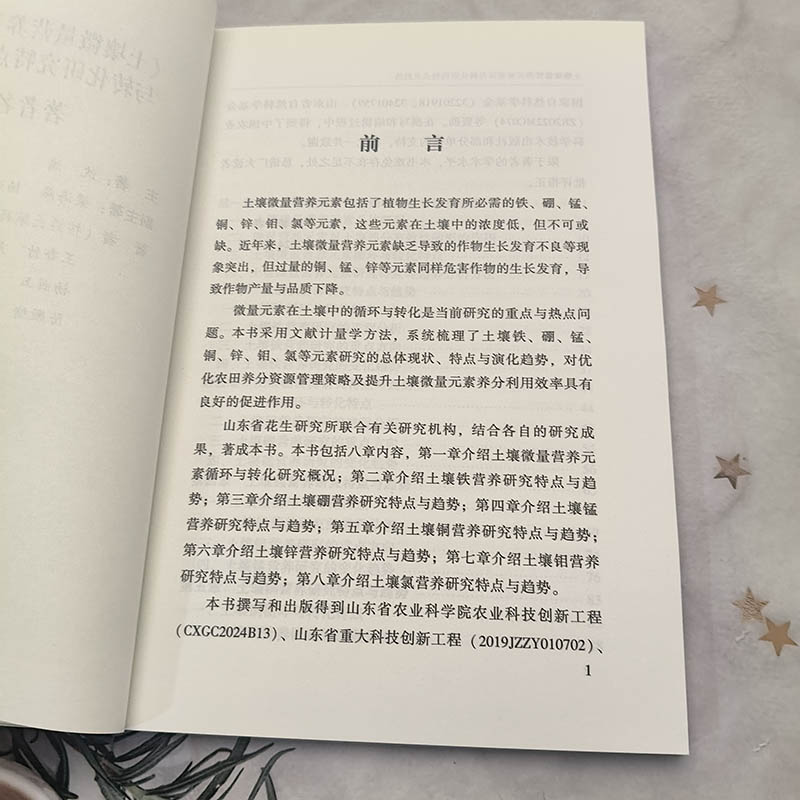 前 言
土壤微量营养元素包括了植物生长发育所必需的铁、硼、锰、
铜、锌、钼、氯等元素，这些元素在土壤中的浓度低，但不可或
缺。近年来，土壤微量营养元素缺乏导致的作物生长发育不良等现
象突出，但过量的铜、锰、锌等元素同样危害作物的生长发育，导
致作物产量与品质下降。
微量元素在土壤中的循环与转化是当前研究的重点与热点问
题。本书采用文献计量学方法，系统梳理了土壤铁、硼、锰、
铜、锌、钼、氯等元素研究的总体现状、特点与演化趋势，对优
化农田养分资源管理策略及提升土壤微量元素养分利用效率具有
良好的促进作用。
山东省花生研究所联合有关研究机构，结合各自的研究成
果，著成本书。本书包括八章内容，第一章介绍土壤微量营养元
素循环与转化研究概况；第二章介绍土壤铁营养研究特点与趋
势；第三章介绍土壤硼营养研究特点与趋势；第四章介绍土壤锰
营养研究特点与趋势；第五章介绍土壤铜营养研究特点与趋势；
第六章介绍土壤锌营养研究特点与趋势；第七章介绍土壤钼营养
研究特点与趋势；第八章介绍土壤氯营养研究特点与趋势。
本书撰写和出版得到山东省农业科学院农业科技创新工程
(CXGC2024B13)、山东省重大科技创新工程（2019JZZY010702）、
1